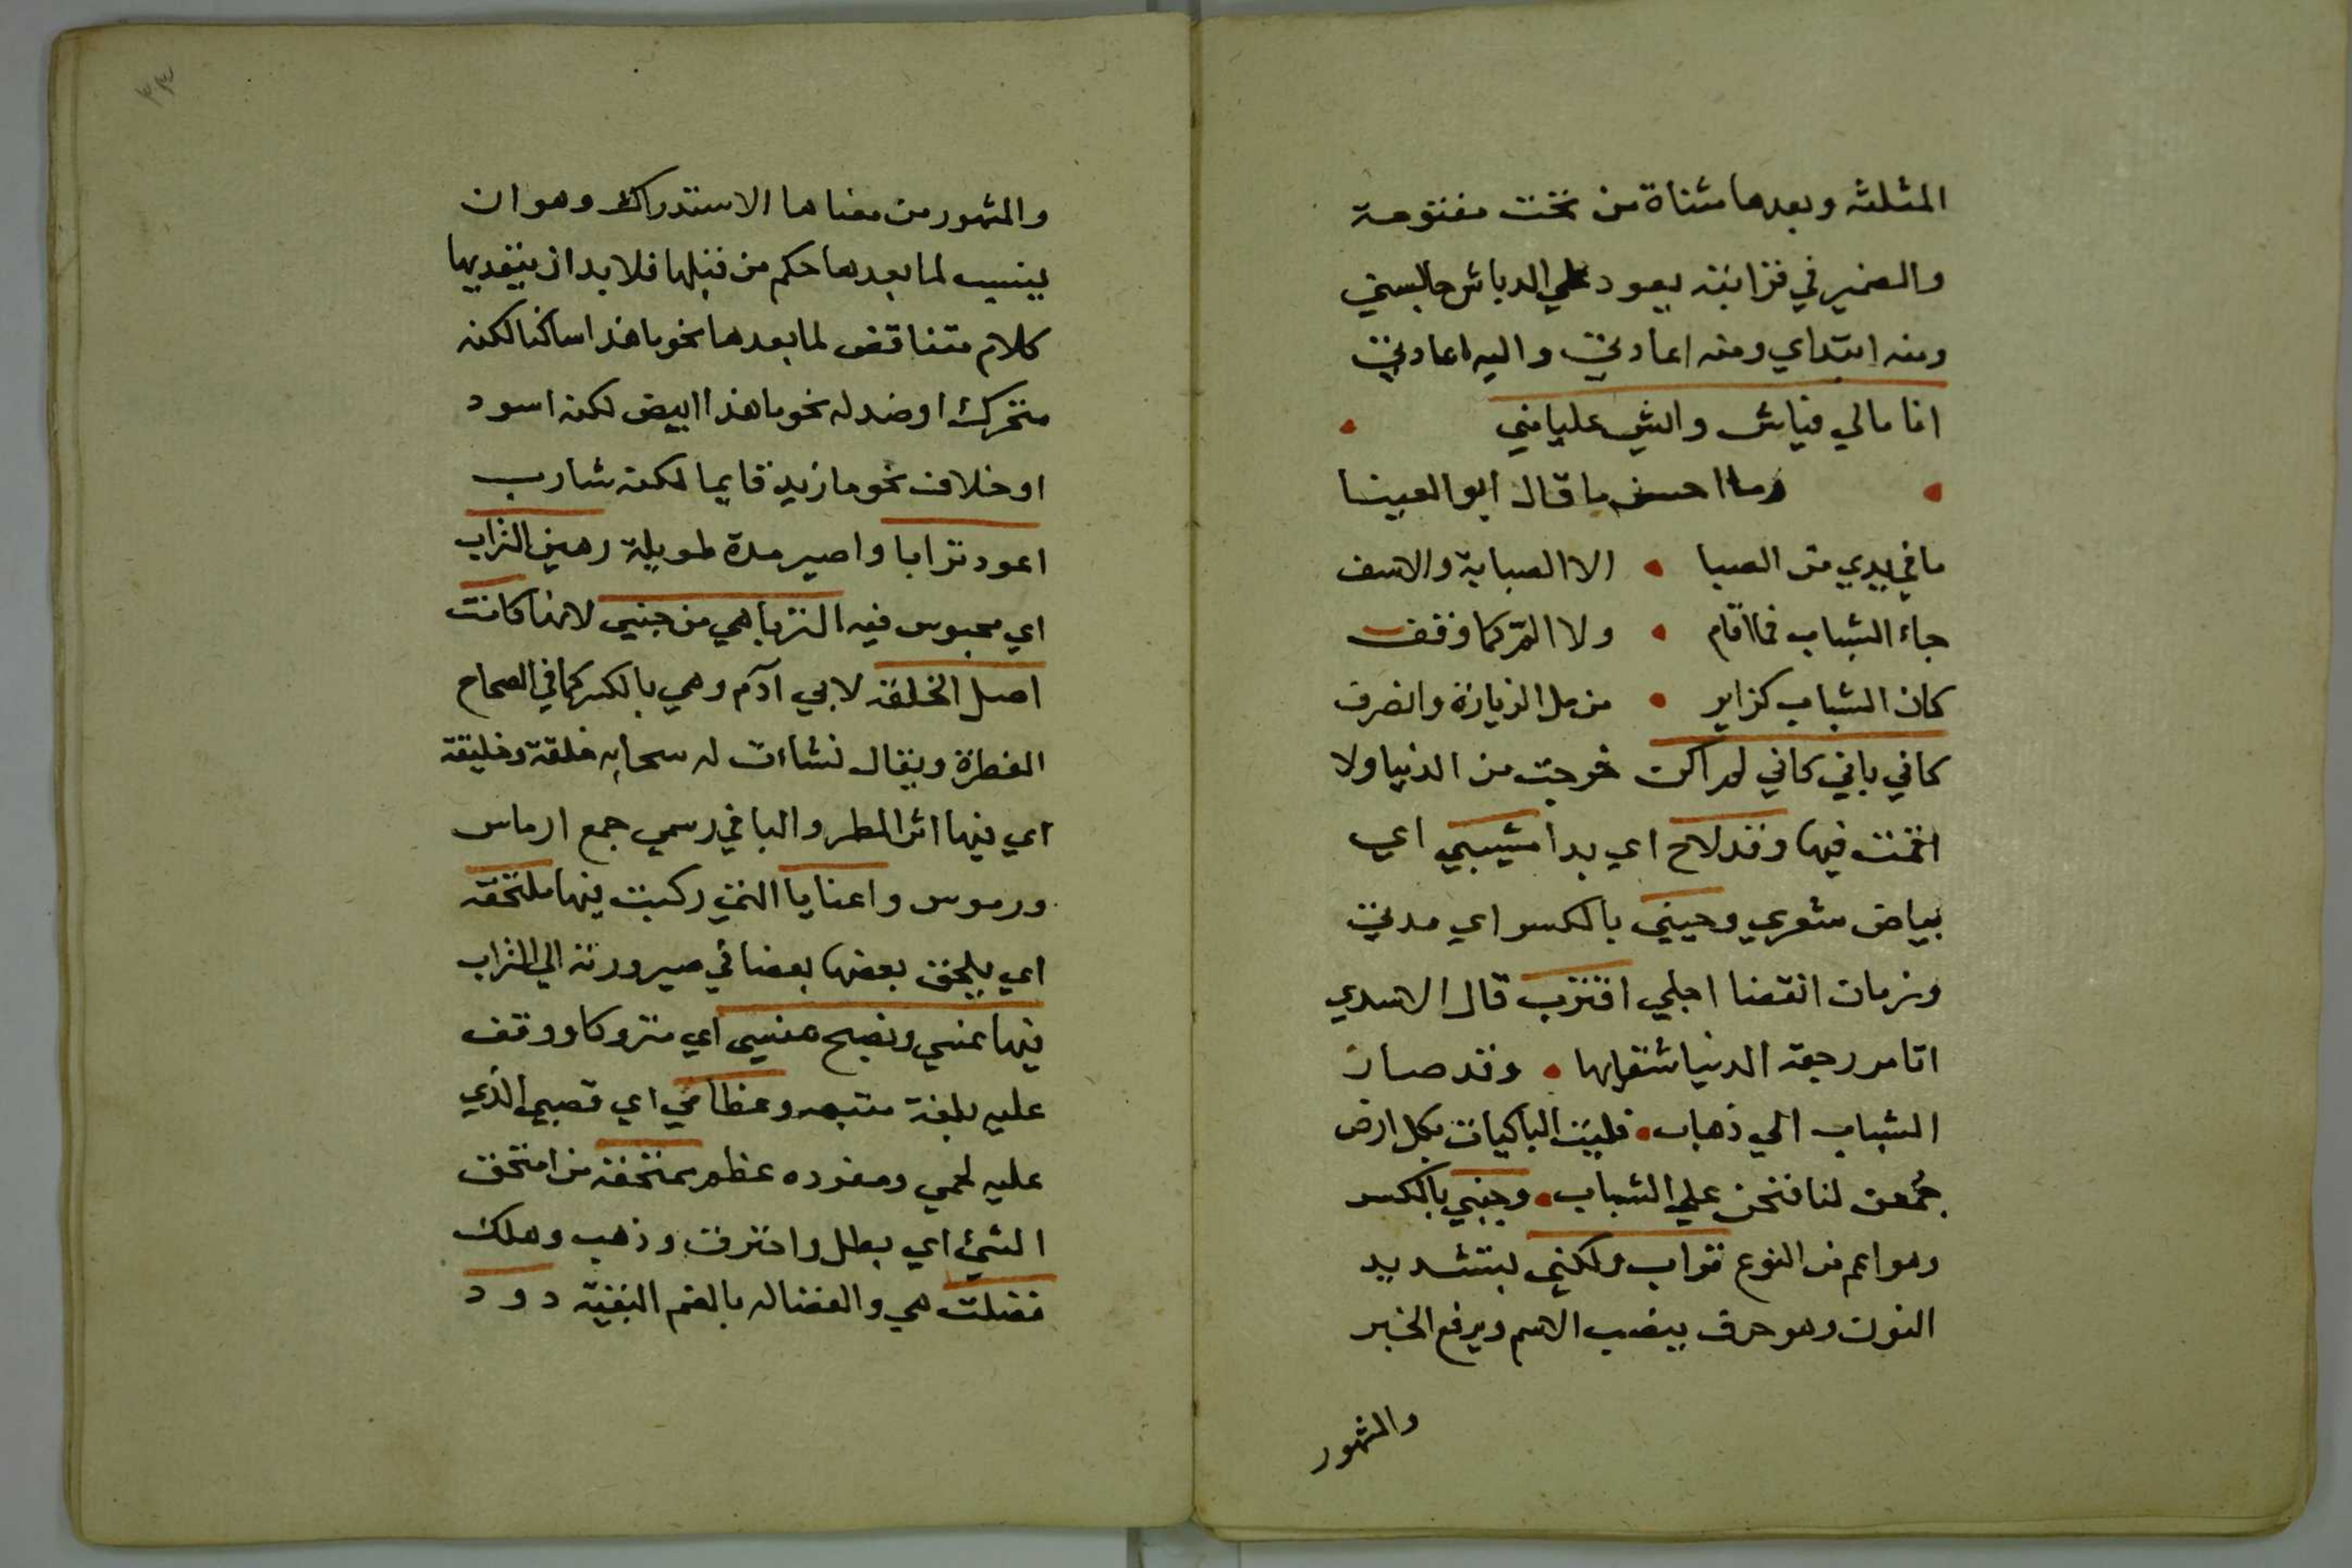 المثلثه وبعدها مثناة من تحت مفتوحة
والضمير في قرابته يعود علي الدباش جالبستي
ومنه ابتداي ومنه اعادني واليه اعادني
انا مالي فياش والشي عليامني
وما احسن ما قال ابو العينا
ما في يدي من الصبا • الا الصبابة والاسف
جاء الشباب فما اقام • ولا المّ كما وقف
كان الشباب كزاير • من مل الزيارة وانصرف
كاني باني كاني لم اكن خرجت من الدنيا ولا
اقمت فيها وقد لاح اي بدا مشيبي اي
بياض شعري وحيني بالكسر اي مدني
وزمان انقضا اجلي اقترب قال الاسدي
اتامر رجعة الدنيا • وقد صار
الشباب الي ذهاب • فليت الباكيات بكل ارض
جُمعن لنا فنحن علي الشباب • وجنبي بالكسر
وهو اعم من النوع تراب ولكني بتشديد
النون وهو حرف ينصب الاسم ويرفع الخبر
والمشهور
٣٣
والمشهور من معناها الاستدراك وهو ان
ينسب لما بعدها حكم من قبلها فلا بد ان يتقديها
كلام متناقض لما بعدها نحو ما هذا ساكنا لكنه
متحرك او ضد له نحو ما هذا ابيض لكنه اسود
او خلاف نحو ما زيد قايما لكنه شارب
اعود ترابا واصير مدة طويلة رهين التراب
اي محبوس فيه الترباهي من جنبي لانها كانت
اصل الخلقة لابي آدم وهي بالكسر كما في الصحاح
الفطرة ويقال نشاءت له سحابه خلقة وخليقة
اي فيها اثر المطر والبا في رسمي جمع ارماس
ورموس واعنايا التي ركبت فيها ملتحقه
اي يلحق بعضها بعضا في صيرورته الي التراب
فيها تمسي وتصبح منسي اي متروكا ووقف
عليه بلغة وعظامي اي قصبي الذي
عليه لحمي ومفرده عظم ممتحقة من امتحق
الشئ اي بطل واحترقت وذهب وهلك
فضلت هي والفضاله بالضم البقية دود